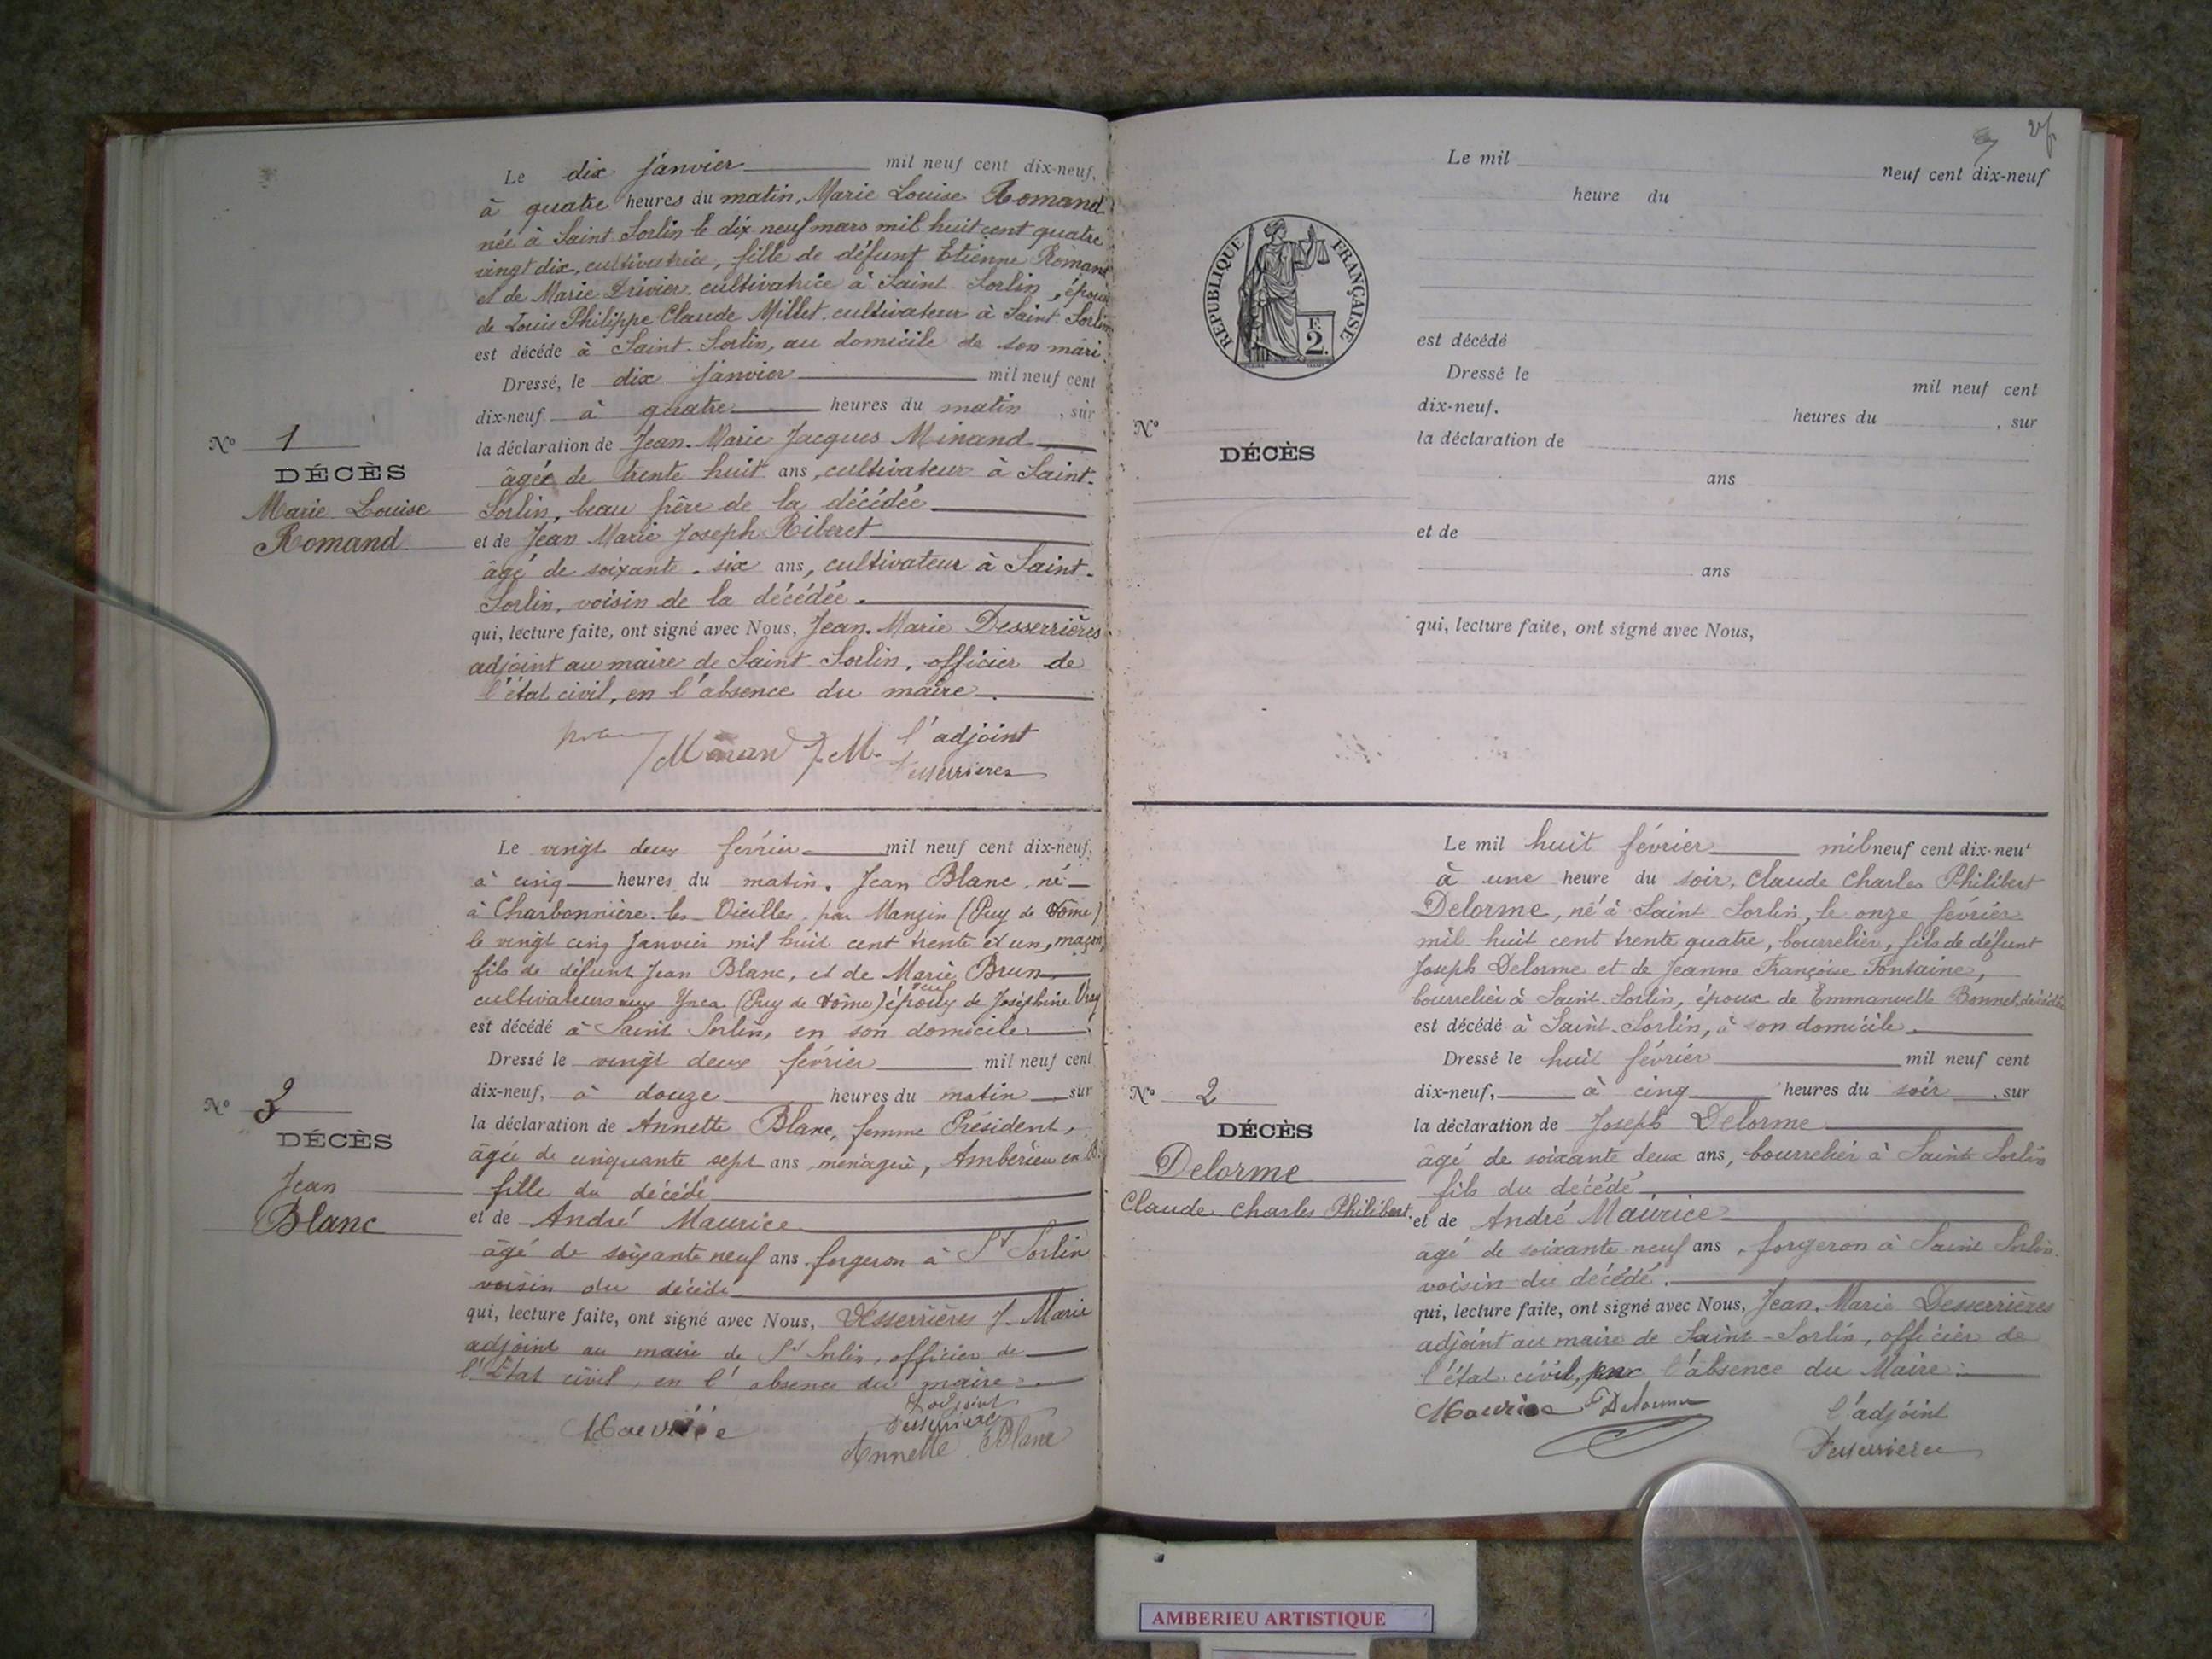 Le dix janvier mil neuf cent dix-neuf,
à quatre heures du matin, Marie Louise Romand
née à Saint Sorlin le dix neuf mars mil huit cent quatre
vingt dix, cultivatrice, fille de défunt Etienne Romand
et de Marie Drivier cultivatrice à Saint Sorlin, épouse
de Louis Philippe Claude Millet cultivateur à Saint Sorlin
est décédé à Saint-Sorlin, au domicile de son mari.
Dressé, le dix janvier mil neuf cent
dix-neuf à quatre heures du matin, sur
la déclaration de Jean-Marie Jacques Minand
âgé de trente huit ans, cultivateur à Saint-
Sorlin, beau frère de la décédée
et de Jean Marie Joseph Riberet
âgé de soixante-six ans, cultivateur à Saint-
Sorlin, voisin de la décédée.
qui, lecture faite, ont signé avec Nous, Jean-Marie Desserrières
adjoint au maire de Saint-Sorlin, officier de
l'état civil, en l'absence du maire.
Minan J. M. l'adjoint
Desserrieres
N° 1
DÉCÈS
Marie Louise
Romand
Le vingt deux février mil neuf cent dix-neuf,
à cinq heures du matin. Jean Blanc, né
à Charbonnière-les-Vieilles, par Manzin (Puy de Dôme)
le vingt cinq Janvier mil huit cent trente et un, maçon,
fils de défunt Jean Blanc, et de Marie Brun
cultivateurs aux (Puy de Dôme) veuf de Joséphine
est décédé à Saint Sorlin, en son domicile
Dressé le vingt deux février mil neuf cent
dix-neuf, à douze heures du matin, sur
la déclaration de Annette Blanc, femme Président,
âgée de cinquante sept ans, ménagère, Ambérieu en B.
fille du décédé
et de André Maurice
âgé de soixante neuf ans, forgeron à St Sorlin
voisin du décédé
qui, lecture faite, ont signé avec Nous, Desserrières J-Marie
adjoint au maire de St Sorlin, officier de
l'Etat civil, en l'absence du maire
L'adjoint
Maurice Desserrieres
Annette Blanc
N° 3
DÉCÈS
Jean
Blanc
27
Le mil neuf cent dix-neuf
heure du
REPUBLIQUE FRANÇAISE
F.
2.
est décédé
Dressé le mil neuf cent
dix-neuf, heures du , sur
la déclaration de
ans
et de
ans
qui, lecture faite, ont signé avec Nous,
N°
DÉCÈS
Le mil huit février mil neuf cent dix-neuf
à une heure du soir, Claude Charles Philibert
Delorme, né à Saint-Sorlin, le onze février
mil huit cent trente quatre, bourrelier, fils de défunt
Joseph Delorme et de Jeanne Françoise Fontaine,
bourrelier à Saint-Sorlin, époux de Emmanuelle Bonnet, décédée
est décédé à Saint-Sorlin, à son domicile.
Dressé le huit février mil neuf cent
dix-neuf, à cinq heures du soir, sur
la déclaration de Joseph Delorme
âgé de soixante deux ans, bourrelier à Saint Sorlin
fils du décédé
et de André Maurice
âgé de soixante neuf ans, forgeron à Saint Sorlin.
voisin du décédé.
qui, lecture faite, ont signé avec Nous, Jean-Marie Desserrières
adjoint au maire de Saint-Sorlin, officier de
l'état civil, l'absence du Maire.
Maurice Delorme l'adjoint
Desserrieres
N° 2
DÉCÈS
Delorme
Claude Charles Philibert
AMBERIEU ARTISTIQUE